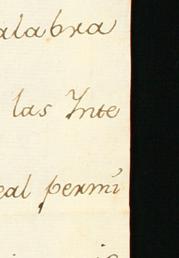 alabra
las Inte
eal permi